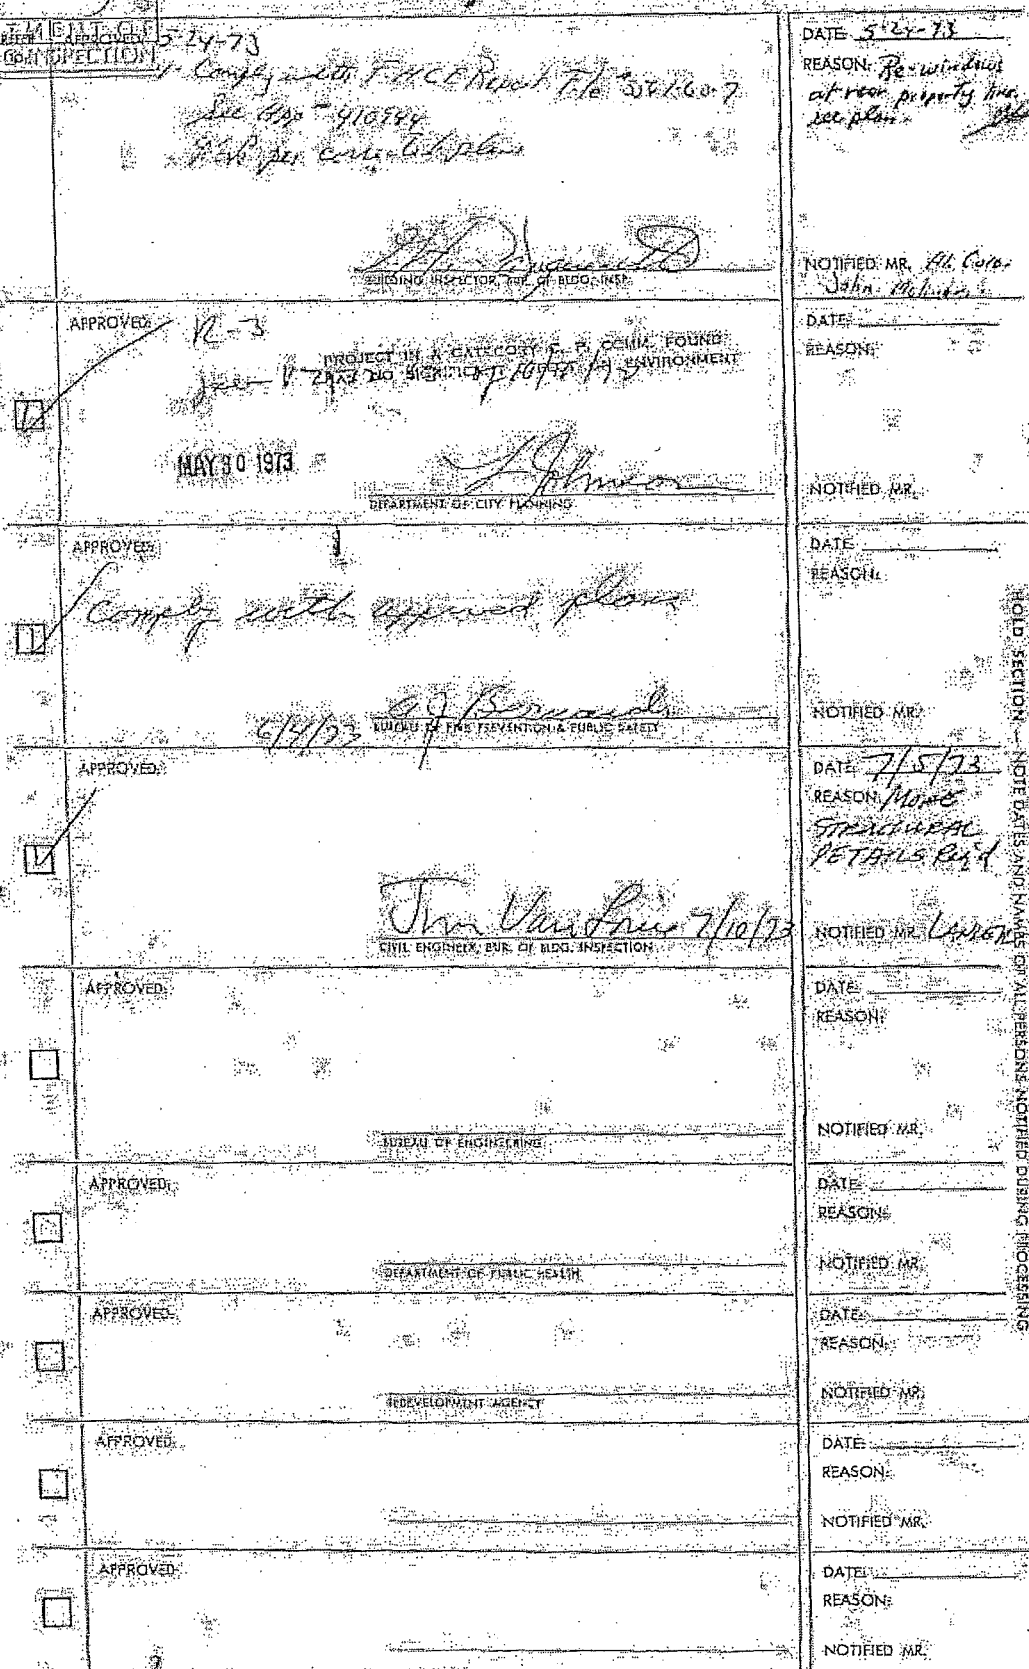 APPROVED
INSPECTION
5-24-73
Comply with Report File
See App 410944
per plan
BUILDING INSPECTOR, BUR. OF BLDG. INSP.
DATE: 5-24-73
REASON: Re-windows
at rear property line
see plan
NOTIFIED MR. Al
John
APPROVED:
R-3
PROJECT IN A CATEGORY C. P. COMM. FOUND
NO ENVIRONMENT
MAY 30 1973
L Johnson
DEPARTMENT OF CITY PLANNING
DATE:
REASON:
NOTIFIED MR.
APPROVED:
Comply with approved plans
6/4/73
BUREAU OF FIRE PREVENTION & PUBLIC SAFETY
DATE:
REASON:
NOTIFIED MR.
APPROVED:
Jim Van 7/10/73
CIVIL ENGINEER, BUR. OF BLDG. INSPECTION
DATE: 7/5/73
REASON: More
STRUCTURAL
DETAILS Req'd
NOTIFIED MR.
APPROVED:
BUREAU OF ENGINEERING
DATE:
REASON:
NOTIFIED MR.
APPROVED:
DEPARTMENT OF PUBLIC HEALTH
DATE:
REASON:
NOTIFIED MR.
APPROVED:
REDEVELOPMENT AGENCY
DATE:
REASON:
NOTIFIED MR.
APPROVED:
DATE:
REASON:
NOTIFIED MR.
APPROVED:
DATE:
REASON:
NOTIFIED MR.
HOLD SECTION — NOTE DATES AND NAMES OF ALL PERSONS NOTIFIED DURING PROCESSING